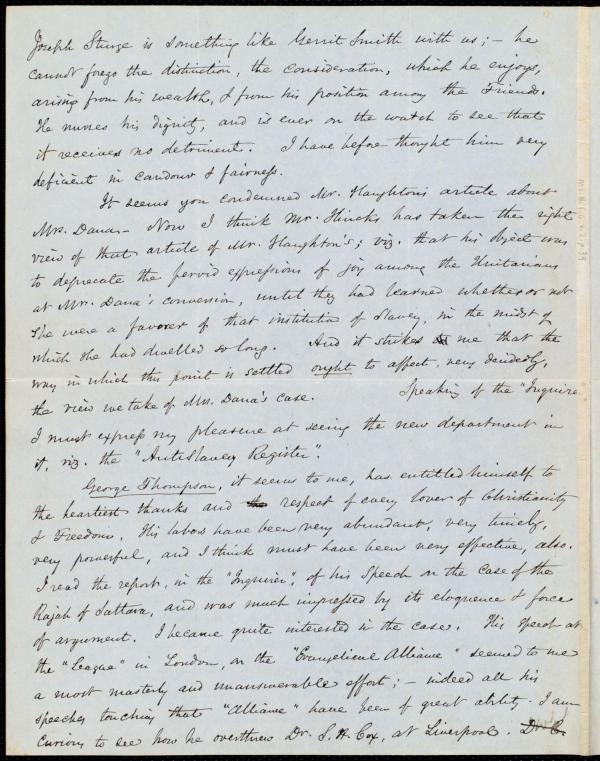 Joseph Sturge is something like Gerrit Smith with us; – he
cannot forego the distinction, the consideration, which he enjoys,
arising from his wealth, & from his position among the Friends.
He nurses his dignity, and is ever on the watch to see that
it receives no detriment. I have before thought him very
deficient in candour & fairness.
It seems you condemned Mr. Haughton's article about
Mrs. Dana – Now I think Mr. Hincks has taken the right
view of that article of Mr. Haughton's; viz. that his object was
to deprecate the fervid expressions of joy among the Unitarians
at Mrs. Dana's conversion, until they had learned whether or not
she were a favorer of that institution of Slavery, in the midst of
which she had dwelled so long. And it strikes me that the
way in which this point is settled ought to affect, very decidedly,
the view we take of Mrs. Dana's case. Speaking of the "Inquirer
I must express my pleasure at seeing the new department in
it, viz. the "AntiSlavery Register".
George Thompson, it seems to me, has entitled himself to
the heartiest thanks and the respect of every lover of Christianity
& Freedom. His labors have been very abundant, very timely,
very powerful, and I think must have been very effective, also.
I read the report, in the "Inquirer", of his Speech on the case of the
Rajah of Sattara, and was much impressed by its eloquence & force
of argument. I became quite interested in the case. His speech at
the "League" in London, on the "Evangelical Alliance" seemed to me
a most masterly and unanswerable effort; – indeed all his
speeches touching that "Alliance" have been of great ability. I am
curious to see how he overthrew Dr. S. H. Cox, at Liverpool. Dr C.